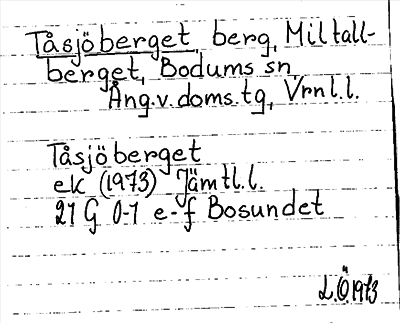 Tåsjöberget, berg, Miltall-
berget, Bodums sn,
Ång.v.doms.tg, Vrnl.l.
Tåsjöberget
ek (1973) Jämtl.l.
21 G 0-1 e-f Bosundet
L.Ö.1973